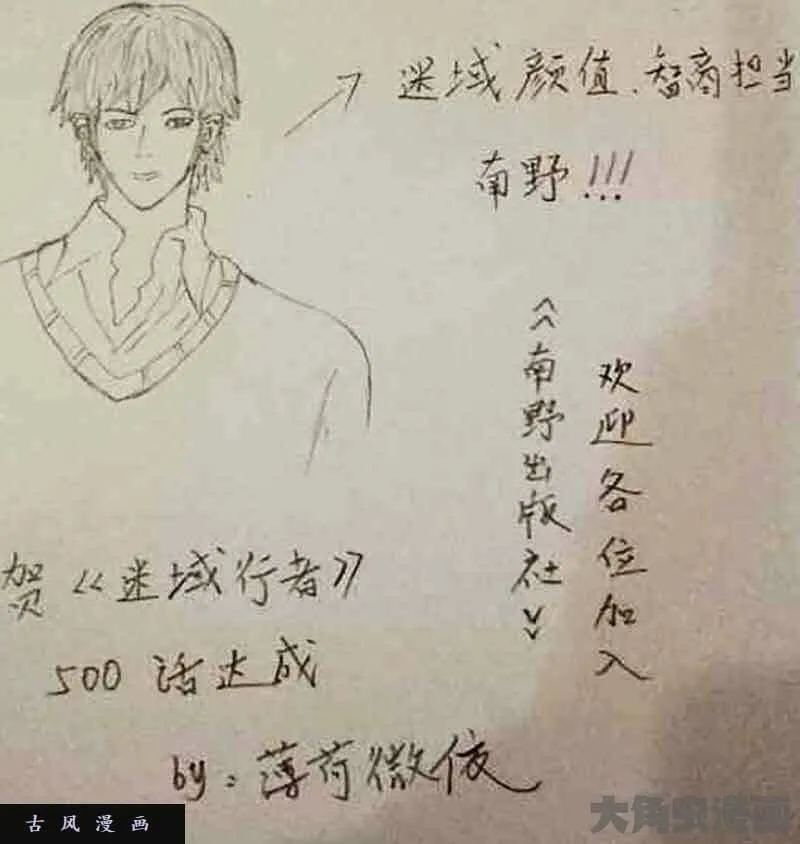 迷域颜值、智商担当
南野!!!
欢迎各位加入
《南野出版社》
贺《迷域行者》
500话达成
by:薄荷微依
古风漫画
大角虫漫画